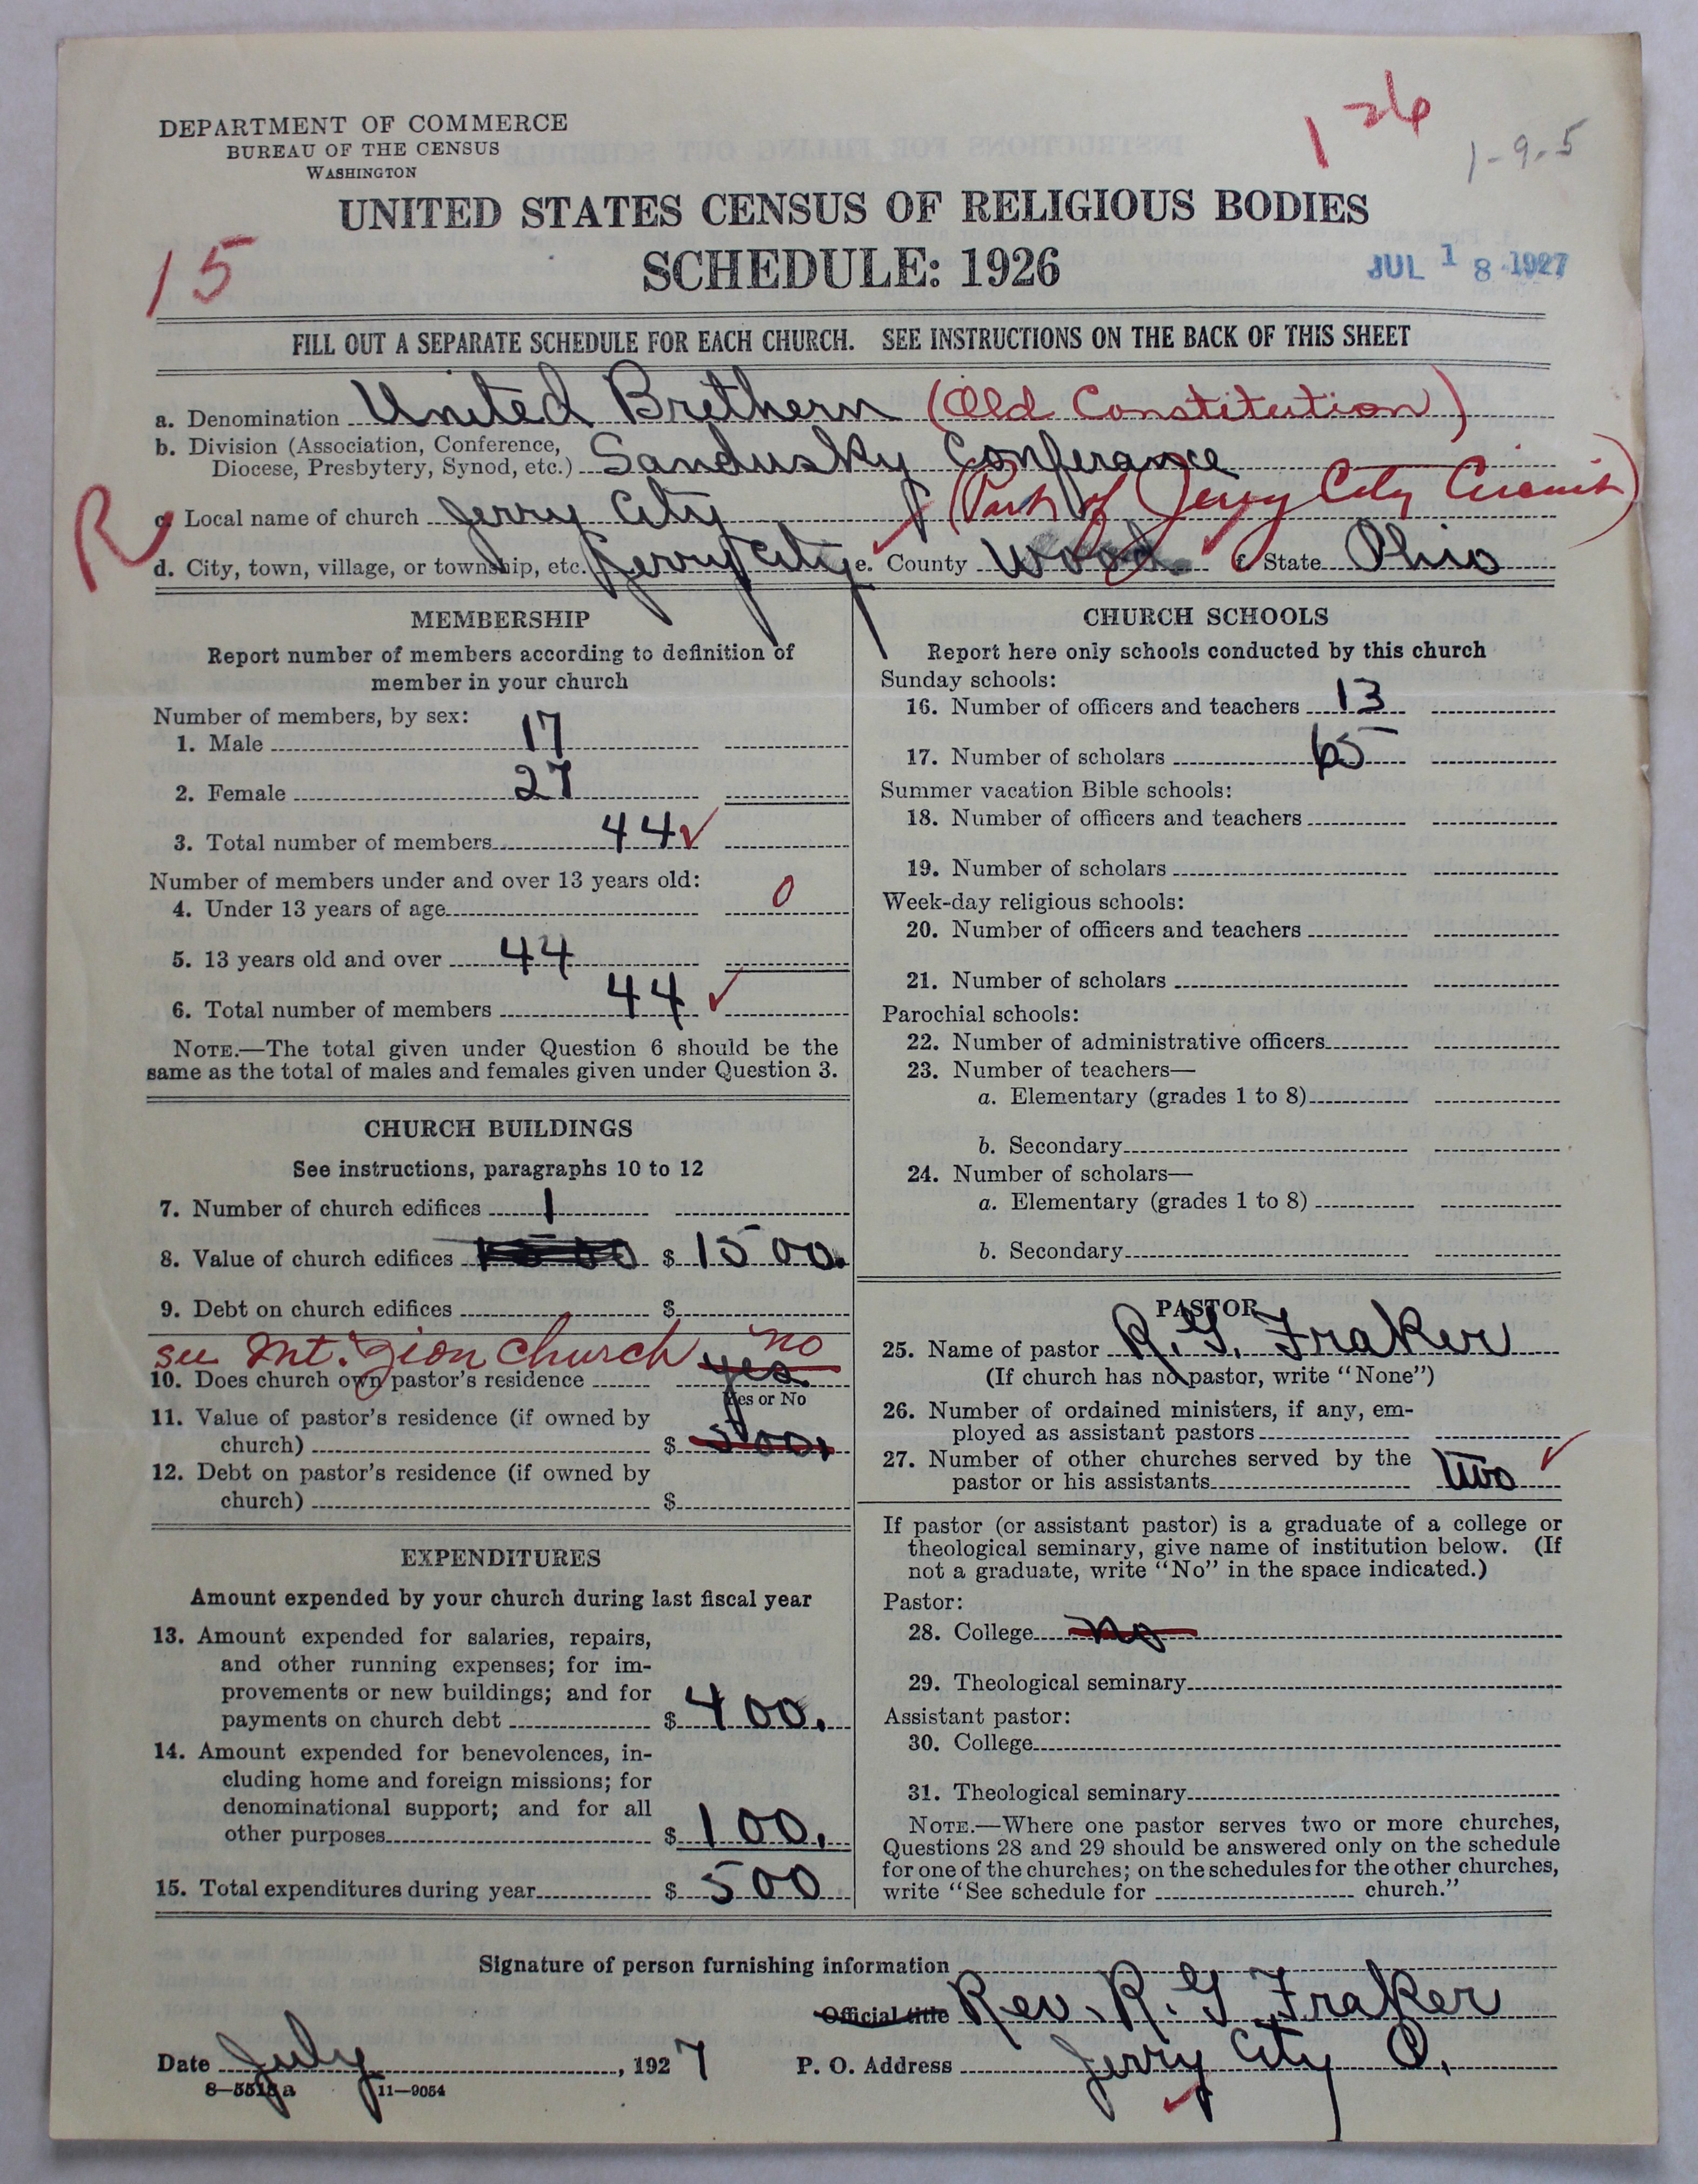 1 26
1-9-5
DEPARTMENT OF COMMERCE
BUREAU OF THE CENSUS
WASHINGTON
UNITED STATES CENSUS OF RELIGIOUS BODIES
SCHEDULE: 1926
15
JUL 18 1927
FILL OUT A SEPARATE SCHEDULE FOR EACH CHURCH. SEE INSTRUCTIONS ON THE BACK OF THIS SHEET
a. Denomination United Brethern (Old Constitution)
b. Division (Association, Conference,
Diocese, Presbytery, Synod, etc.) Sandusky Conferance
R
c. Local name of church Jerry City (Part of Jerry City Circuit)
d. City, town, village, or township, etc. Jerry City e. County Wood f. State Ohio
MEMBERSHIP
Report number of members according to definition of
member in your church
Number of members, by sex:
1. Male 17
2. Female 27
3. Total number of members 44 ✓
Number of members under and over 13 years old:
4. Under 13 years of age 0
5. 13 years old and over 44
6. Total number of members 44 ✓
NOTE.—The total given under Question 6 should be the
same as the total of males and females given under Question 3.
CHURCH BUILDINGS
See instructions, paragraphs 10 to 12
7. Number of church edifices 1
8. Value of church edifices $ 1500.
9. Debt on church edifices $
see Mt. Zion Church no
10. Does church own pastor's residence yes
Yes or No
11. Value of pastor's residence (if owned by
church) $ 500.
12. Debt on pastor's residence (if owned by
church) $
EXPENDITURES
Amount expended by your church during last fiscal year
13. Amount expended for salaries, repairs,
and other running expenses; for im-
provements or new buildings; and for
payments on church debt $ 400.
14. Amount expended for benevolences, in-
cluding home and foreign missions; for
denominational support; and for all
other purposes $ 100.
15. Total expenditures during year $ 500
CHURCH SCHOOLS
Report here only schools conducted by this church
Sunday schools:
16. Number of officers and teachers 13
17. Number of scholars 65
Summer vacation Bible schools:
18. Number of officers and teachers
19. Number of scholars
Week-day religious schools:
20. Number of officers and teachers
21. Number of scholars
Parochial schools:
22. Number of administrative officers
23. Number of teachers—
a. Elementary (grades 1 to 8)
b. Secondary
24. Number of scholars—
a. Elementary (grades 1 to 8)
b. Secondary
PASTOR
25. Name of pastor R. G. Fraker
(If church has no pastor, write "None")
26. Number of ordained ministers, if any, em-
ployed as assistant pastors
27. Number of other churches served by the
pastor or his assistants two ✓
If pastor (or assistant pastor) is a graduate of a college or
theological seminary, give name of institution below. (If
not a graduate, write "No" in the space indicated.)
Pastor:
28. College no
29. Theological seminary
Assistant pastor:
30. College
31. Theological seminary
NOTE.—Where one pastor serves two or more churches,
Questions 28 and 29 should be answered only on the schedule
for one of the churches; on the schedules for the other churches,
write "See schedule for church."
Signature of person furnishing information
Official title Rev. R. G Fraker
Date July, 1927 P. O. Address Jerry City O.
8—5518a 11—9054